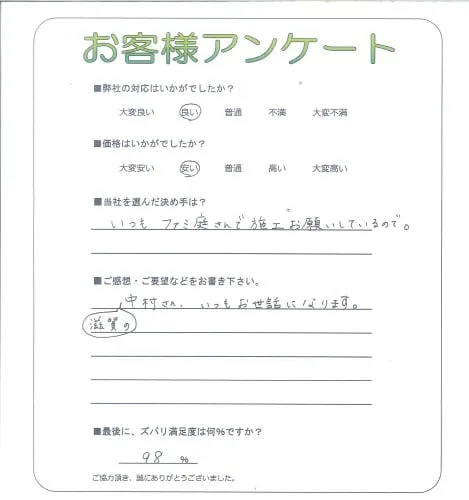 お客様アンケート
■弊社の対応はいかがでしたか?
大変良い 良い 普通 不満 大変不満
■価格はいかがでしたか?
大変安い 安い 普通 高い 大変高い
■当社を選んだ決め手は?
いつも ファミ庭さんで施工お願いしているので。
■ご感想・ご要望などをお書き下さい。
中村さん、いつもお世話になります。
滋賀の
■最後に、ズバリ満足度は何%ですか?
98 %
ご協力頂き、誠にありがとうございました。